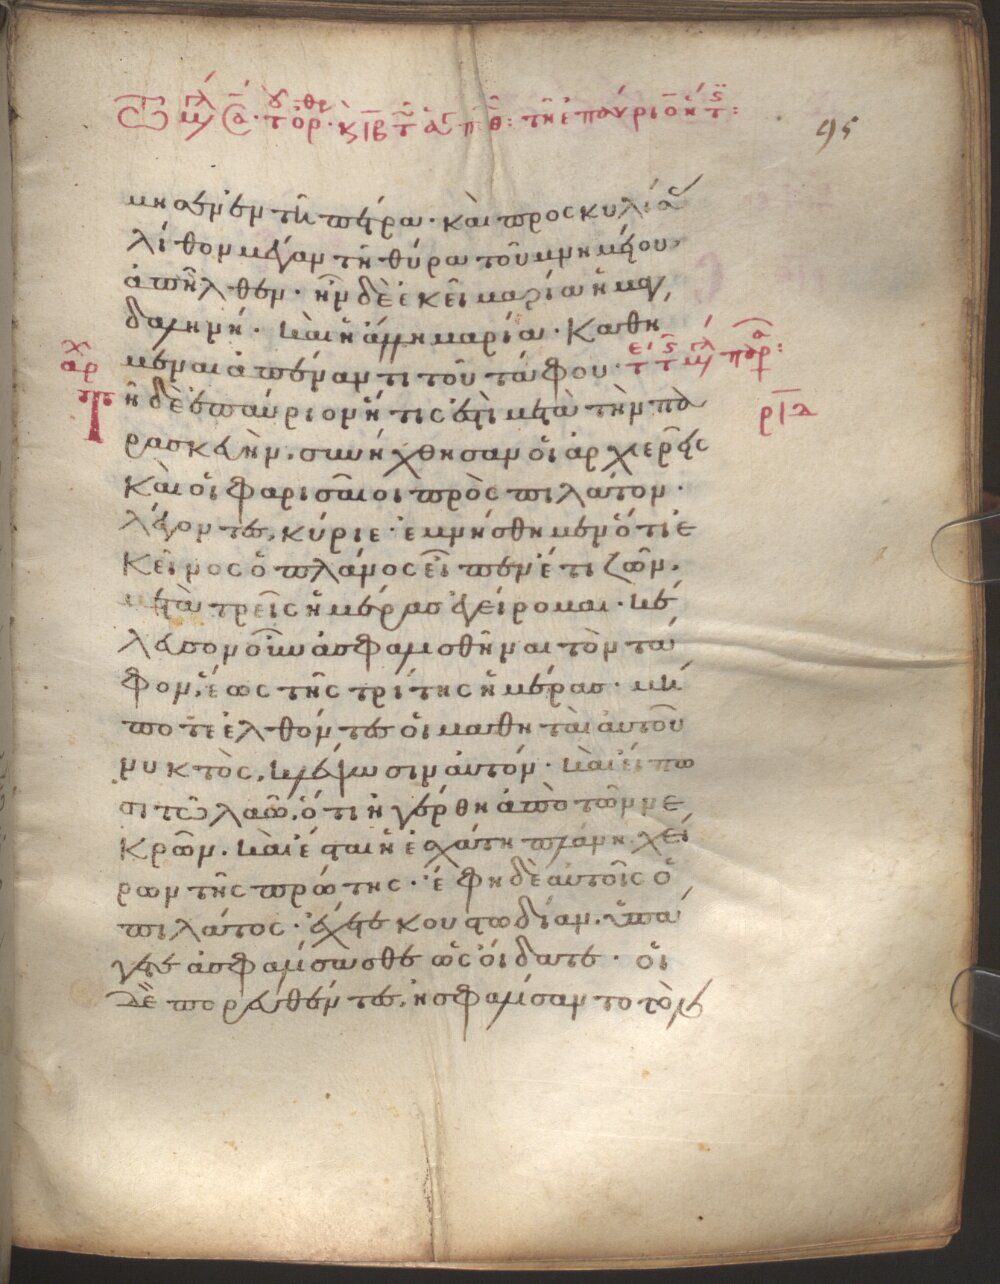 95
μησεν ἐν τῇ πέτρα· καὶ προσκυλίσασ
λίθον μέγαν τῇ θύρα τοῦ μνημείου
ἀπῆλθεν· ἦν δὲ ἐκεῖ μαρία ἡ μαγ
δαληνή· καὶ ἡ ἄλλη μαρία· Καθη
μεναι ἀπέναντι τοῦ τάφου·
Τῆ δὲ ἐπαύριον ἥτις ἐστὶ μετὰ τὴν πα
ρασκευὴν, συνήχθησαν οἱ ἀρχιερεῖς
Καὶ οἱ φαρισαῖοι πρὸς πιλάτον·
λέγοντες, κύριε· ἐμνήσθημεν ὅτι ἐ
Κεῖνος ὁ πλάνος εἶπεν ἔτι ζῶν,
μετὰ τρεῖς ἡμέρας ἐγείρομαι· κέ
λευσον οὖν ἀσφαλισθῆναι τὸν τά
φον, ἕως τῆς τρίτης ἡμέρας· μή
ποτε ἐλθόντες οἱ μαθηταὶ αὐτοῦ
νυκτὸς, κλέψωσιν αὐτόν· καὶ εἴπω
σι τῶ λαῶ, ὅτι ἠγέρθη ἀπὸ τῶν νε
Κρῶν. καὶ ἔσται ἡ ἐσχάτη πλάνη χεί
ρων τῆς πρώτης· ἔφη δὲ αὐτοῖς ὁ
πιλάτος· ἔχετε κουστωδίαν. ὑπά
γετε ἀσφαλίσασθε ὡς οἴδατε· οἱ
δὲ πορευθέντες, ἠσφαλίσαντο τὸν